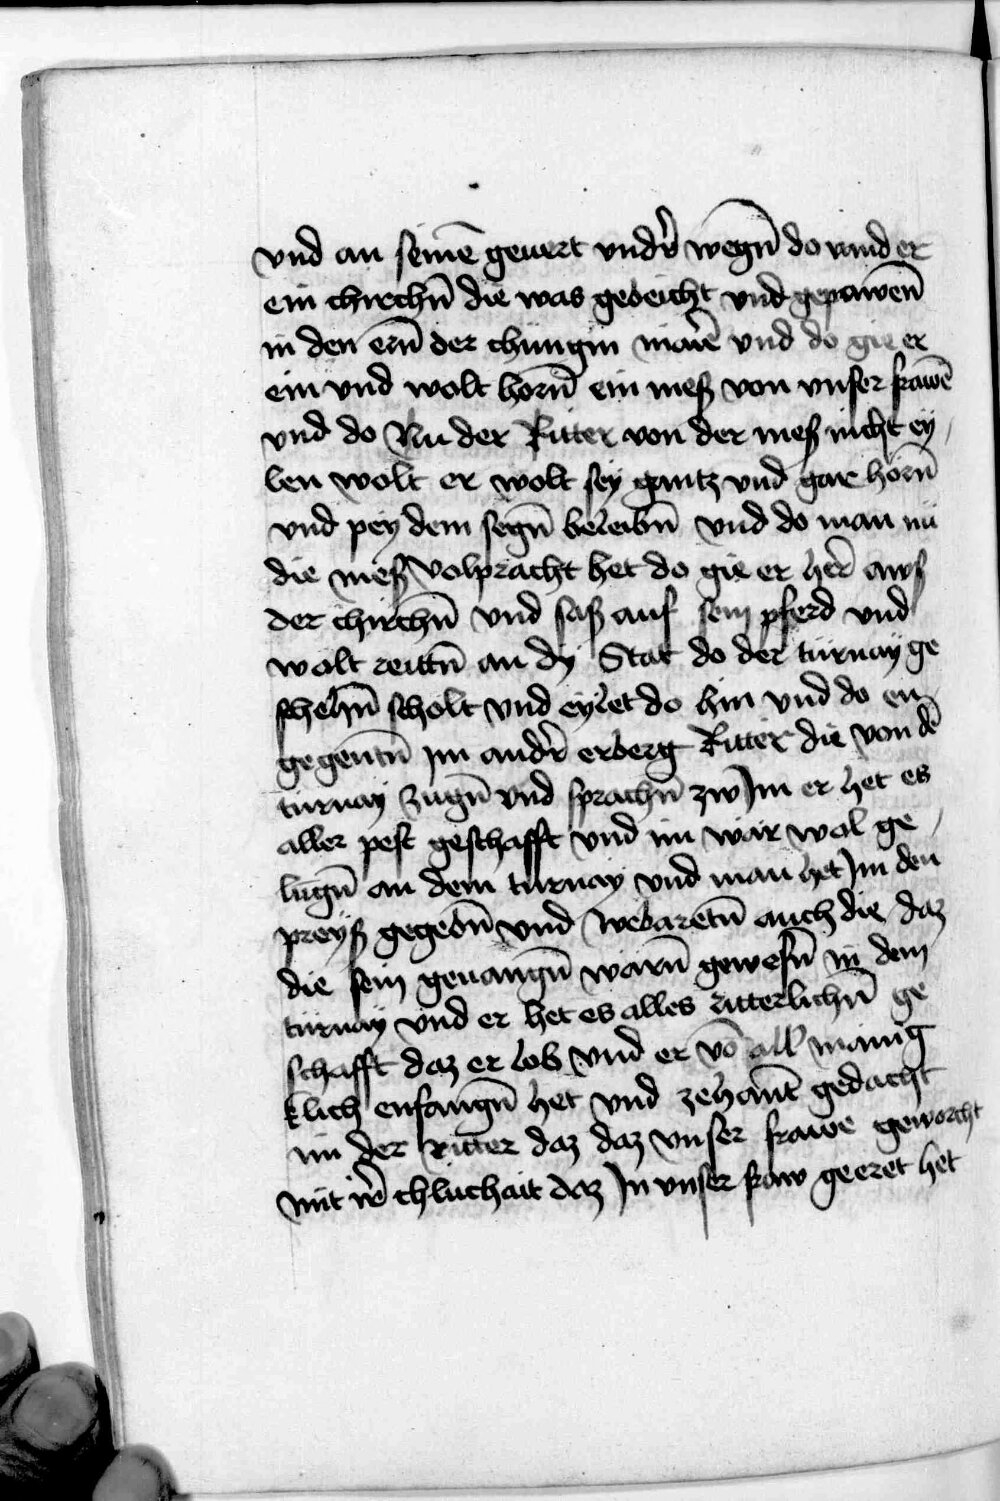 vnd an seinē geuert vndr̄ wegn̄ do vand er
ein chirchn̄ die was geweicht vnd gepawen̄
in den ern̄ der chüngin marē vnd do gie er
ein vnd wolt horn̄ ein mesz von vnser frawē
vnd do Nu der Ritter von der mesz nicht ey
len wolt er wolt sey gantz vnd gar horn̄
vnd pey dem segn̄ beleibn̄ vnd do man nü
die mesz volpracht het do gie er her̄ awsz
der chirchn̄ vnd sasz auf sein pferd vnd
wolt reittn̄ an dy Stat do der türnay ge
schehn̄ scholt vnd eylet do hin vnd do en
gegentn̄ Im andr̄ erberg Ritter die von dē
turnay zugn̄ vnd sprachn̄ zw Im er het es
aller pest geschafft vnd im wär wol ge
lugn̄ an dem turnay vnd man het Im den
preysz gegebn̄ vnd webaretn̄ auch die daz
die sein geuangn̄ warn̄ gewesn̄ in dem
türnay vnd er het es alles ritterlichn̄ ge
schafft daz er lob vnd er vō all mänig
klich enfangn̄ het vnd zehant gedacht
im der Ritter daz daz vnser frawe geworcht
mit ir̄ chluchait daz In vnser fraw geeret het